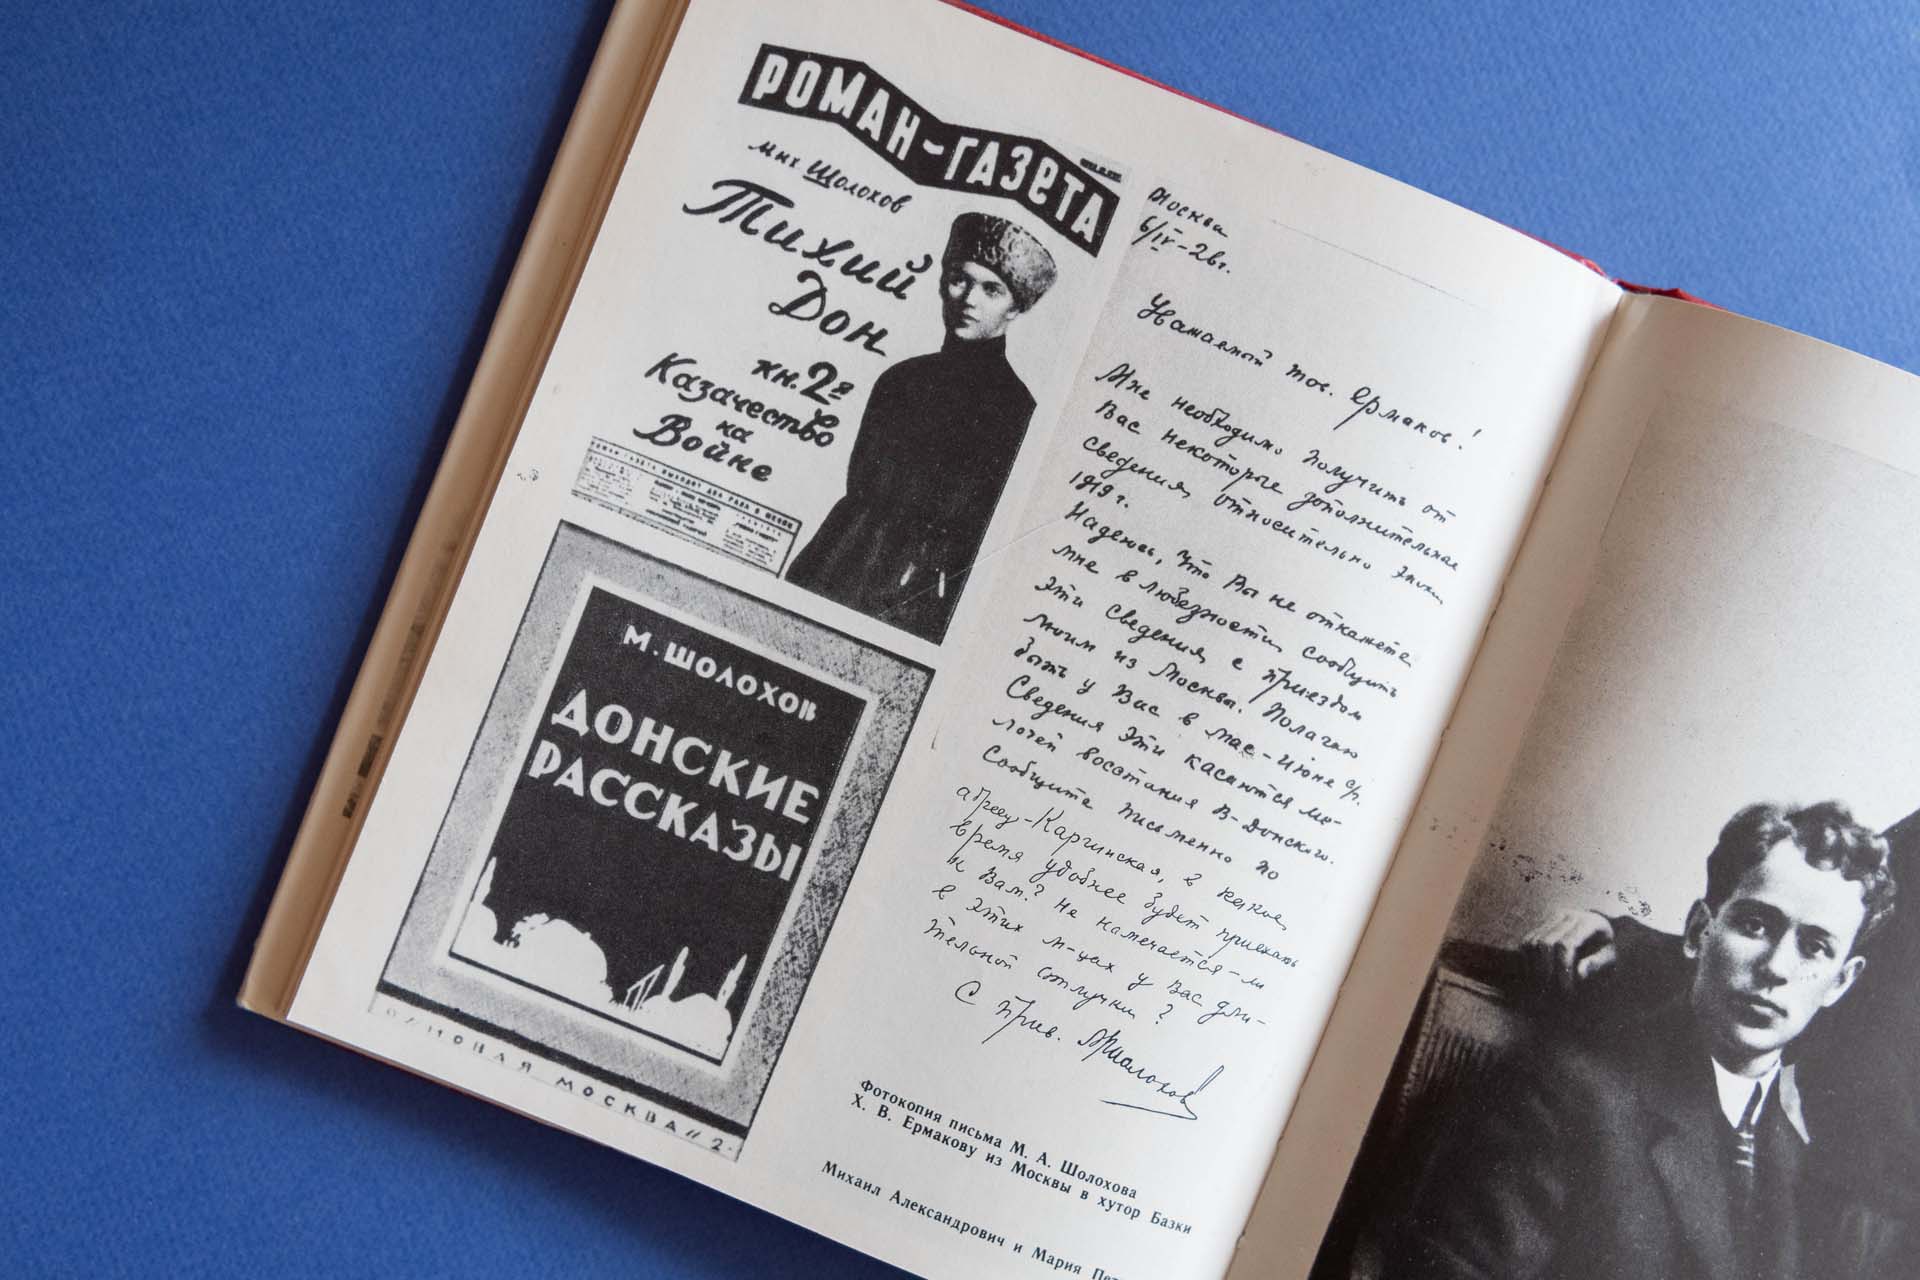 РОМАН-ГАЗЕТА
мих Шолохов
Тихий
Дон
кн. 2я
Казачество
на
Войне
М. ШОЛОХОВ
ДОНСКИЕ
РАССКАЗЫ
МОСКВА
Москва
6/IV-26г.
Уважаемый тов. Ермаков!
Мне необходимо получить от
Вас некоторые дополнительные
сведения относительно эпохи
1919 г.
Надеюсь, что Вы не откажете
мне в любезности сообщить
эти сведения с приездом
моим из Москвы. Полагаю
быть у Вас в мае-июне с/г.
Сведения эти касаются ме-
лочей восстания В-Донского.
Сообщите письменно по
адресу-Каргинская, в какое
время удобнее будет приехать
к Вам? Не намечается-ли
в этих м-цах у Вас дли-
тельной отлучки?
С прив. МШолохов
Фотокопия письма М. А. Шолохова
Х. В. Ермакову из Москвы в хутор Базки
Михаил Александрович и Мария